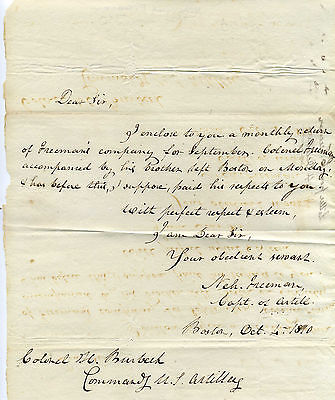 Dear Sir,
I enclose to you a monthly return
of Freeman's company for September. Colonel Freeman
accompanied by his Brother left Boston on Monday
& has before this, I suppose, paid his respects to you
With perfect respect & esteem,
I am Dear Sir,
Your obedient servant.
Neh. Freeman,
Capt. of Artill.
Boston, Oct. 4. 1810
Colonel H. Burbeck
Commandg U. S. Artillery